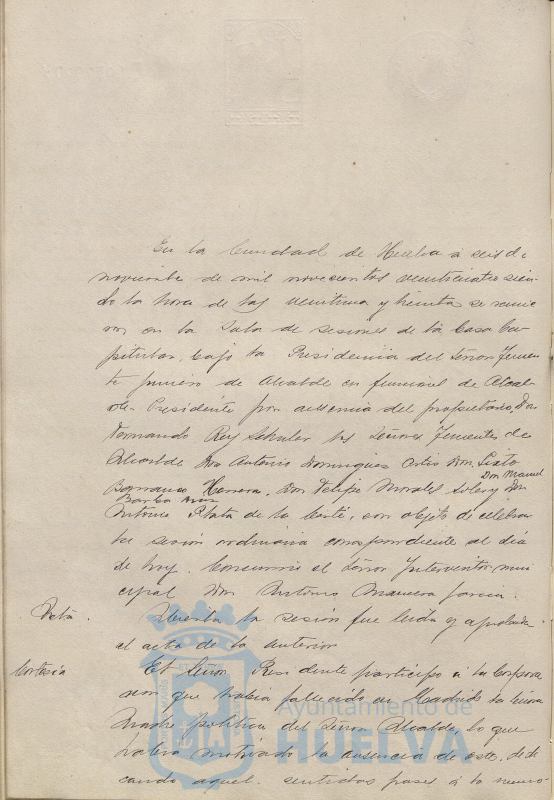 En la Ciudad de Huelva á seis de
noviembre de mil novecientos veinticuatro sien-
do la hora de las veintiuna y treinta se reunie
ron en la Sala de sesiones de la Casa Ca-
pitular, bajo la Presidencia del Señor Tenien-
te primero de Alcalde en funciones de Alcal-
de Presidente por ausencia del propietario, Don
Fernando Rey los Señores Tenientes de
Alcalde Don Antonio Dominguez Ortiz Don Sixto
Don Manuel
Barranco Herrera, Don Felipe Morales y Don
Barba
Antonio Plata de la Corte, con objeto de celebrar
la sesión ordinaria correspondiente al día
de hoy. Concurrió el Señor Interventor muni
cipal Don Antonio Garcia.
Acta. Abierta la sesión fue leída y aprobada
el acta de la anterior
Cortesia El Señor Presidente participó á la Corpora
cion que había fallecido en Madrid la Señora
Madre política del Señor Alcalde, lo que
había motivado la ausencia de este, dedi
cando aquel sentidas frases á la memo-
Ayuntamiento de
HUELVA